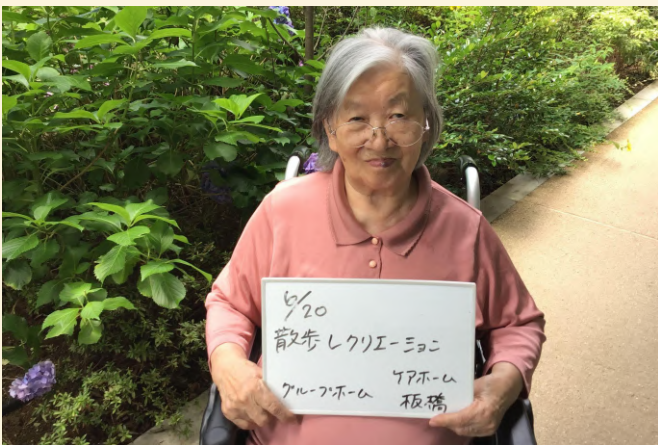 6/20
散歩レクリエーション
グループホーム
ケアホーム
板橋